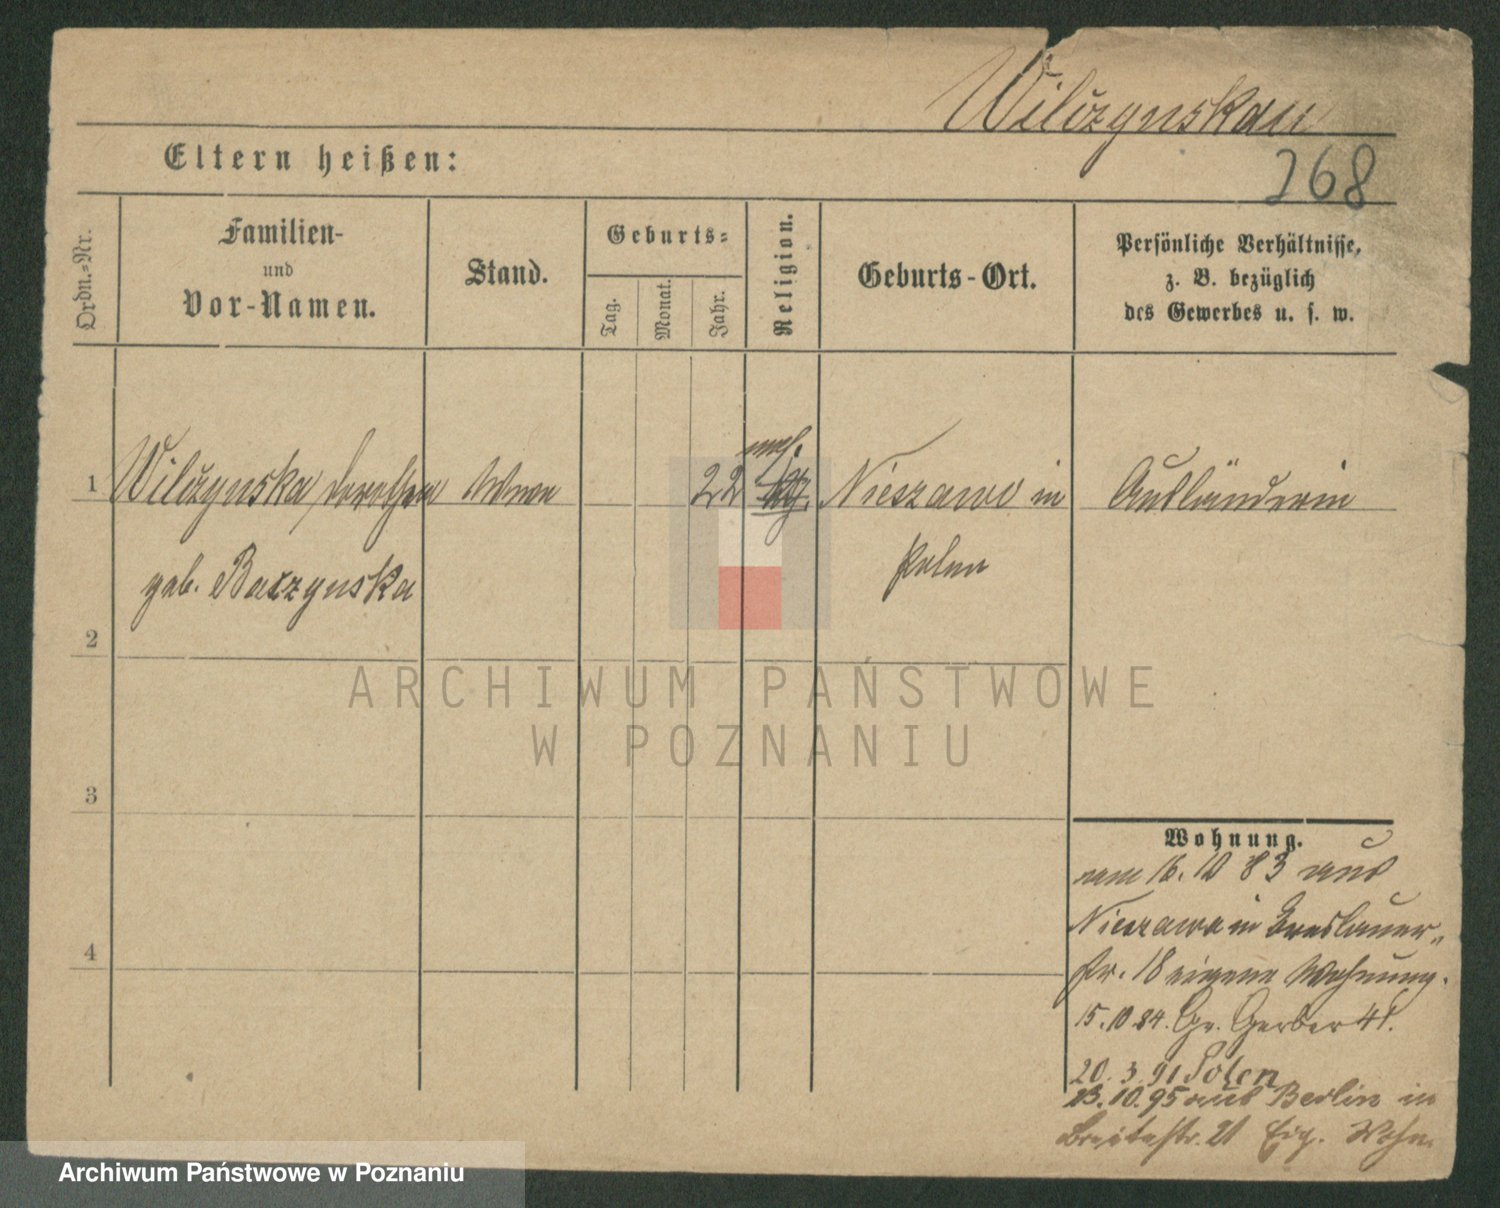 Wilczynska
268
Eltern heißen:
Ordn.-Nr.
Familien-
und
Vor-Namen.
Stand.
Geburts-
Tag.
Monat.
Jahr.
Religion.
Geburts-Ort.
Persönliche Verhältnisse,
z. B. bezüglich
des Gewerbes u. s. w.
1 Wilczynska, Dorothea Wwe 22 Nieszawo in Ausländerin
geb. Baczynska Polen
2
3
4
Wohnung.
am 16. 10 83 aus
Nieszawa in Breslauer-
str. 18 eigene Wohnung.
15. 10 84. Gr. Gerber 41.
20. 3. 91 Polen
23. 10. 95 aus Berlin in
Breitestr. 21 Eig. Wohn.
ARCHIWUM PAŃSTWOWE
W POZNANIU
Archiwum Państwowe w Poznaniu